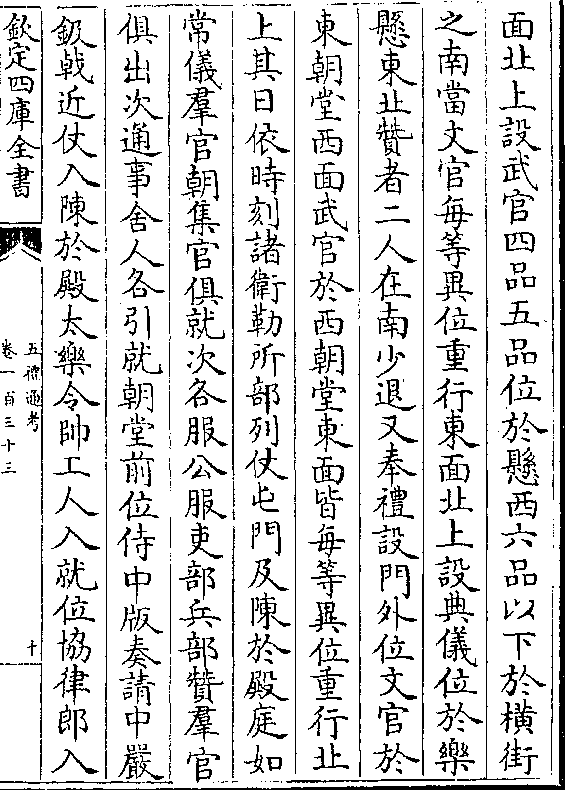 面北上設武官四品五品位於懸西六品以下於横街
之南當文官每等異位重行東面北上設典儀位於樂
懸東北贊者二人在南少退又奉禮設門外位文官於
東朝堂西面武官於西朝堂東面皆每等異位重行北
上其日依時刻諸衛勒所部列仗屯門及陳於殿庭如
常儀羣官朝集官俱就次各服公服吏部兵部贊羣官
俱出次通事舍人各引就朝堂前位侍中版奏請中嚴
鈒戟近仗入陳於殿太樂令帥工人入就位協律郎入
欽定四庫全書
五禮通考
卷一百三十三
十